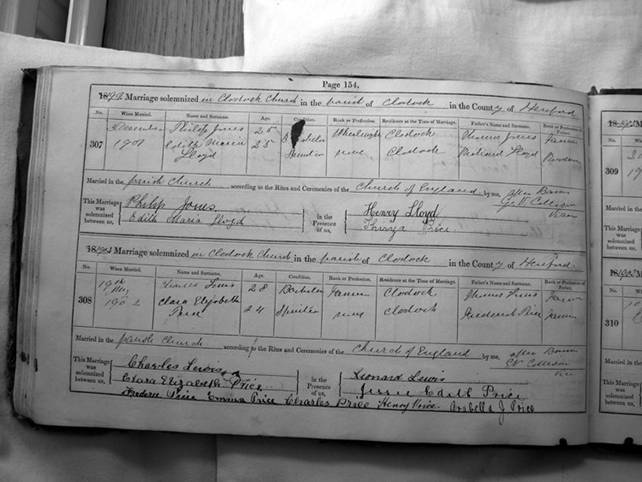 Page 154.
Marriage solemnized in Clodock Church in the parish of Clodock in the County of Hereford
No. When Married. Name and Surname. Age. Condition. Rank or Profession. Residence at the Time of Marriage. Father's Name and Surname. Rank or Profession of Father.
307 1901 Philip Jones 25 Bachelor Wheelwright Clodock Thomas Jones Farmer
Edith Maria Lloyd 25 Spinster Clodock Richard Lloyd
Married in the parish Church according to the Rites and Ceremonies of the Church of England by me, after Banns
This Marriage was solemnized between us, Philip Jones
Edith Maria Lloyd
in the Presence of us, Henry Lloyd
Price
Vicar
Marriage solemnized in Clodock Church in the parish of Clodock in the County of Hereford
No. When Married. Name and Surname. Age. Condition. Rank or Profession. Residence at the Time of Marriage. Father's Name and Surname. Rank or Profession of Father.
308 190 2 Lewis 28 Bachelor Farmer Clodock Thomas Lewis Farmer
Clara Elizabeth Price 24 Spinster Clodock Frederick Price Farmer
Married in the parish Church according to the Rites and Ceremonies of the Church of England by me, after Banns
This Marriage was solemnized between us, Charles Lewis
Clara Elizabeth Price
in the Presence of us, Leonard Lewis
Edith Price
Price Emma Price Charles Price Henry Price Arabella J Price
309
310